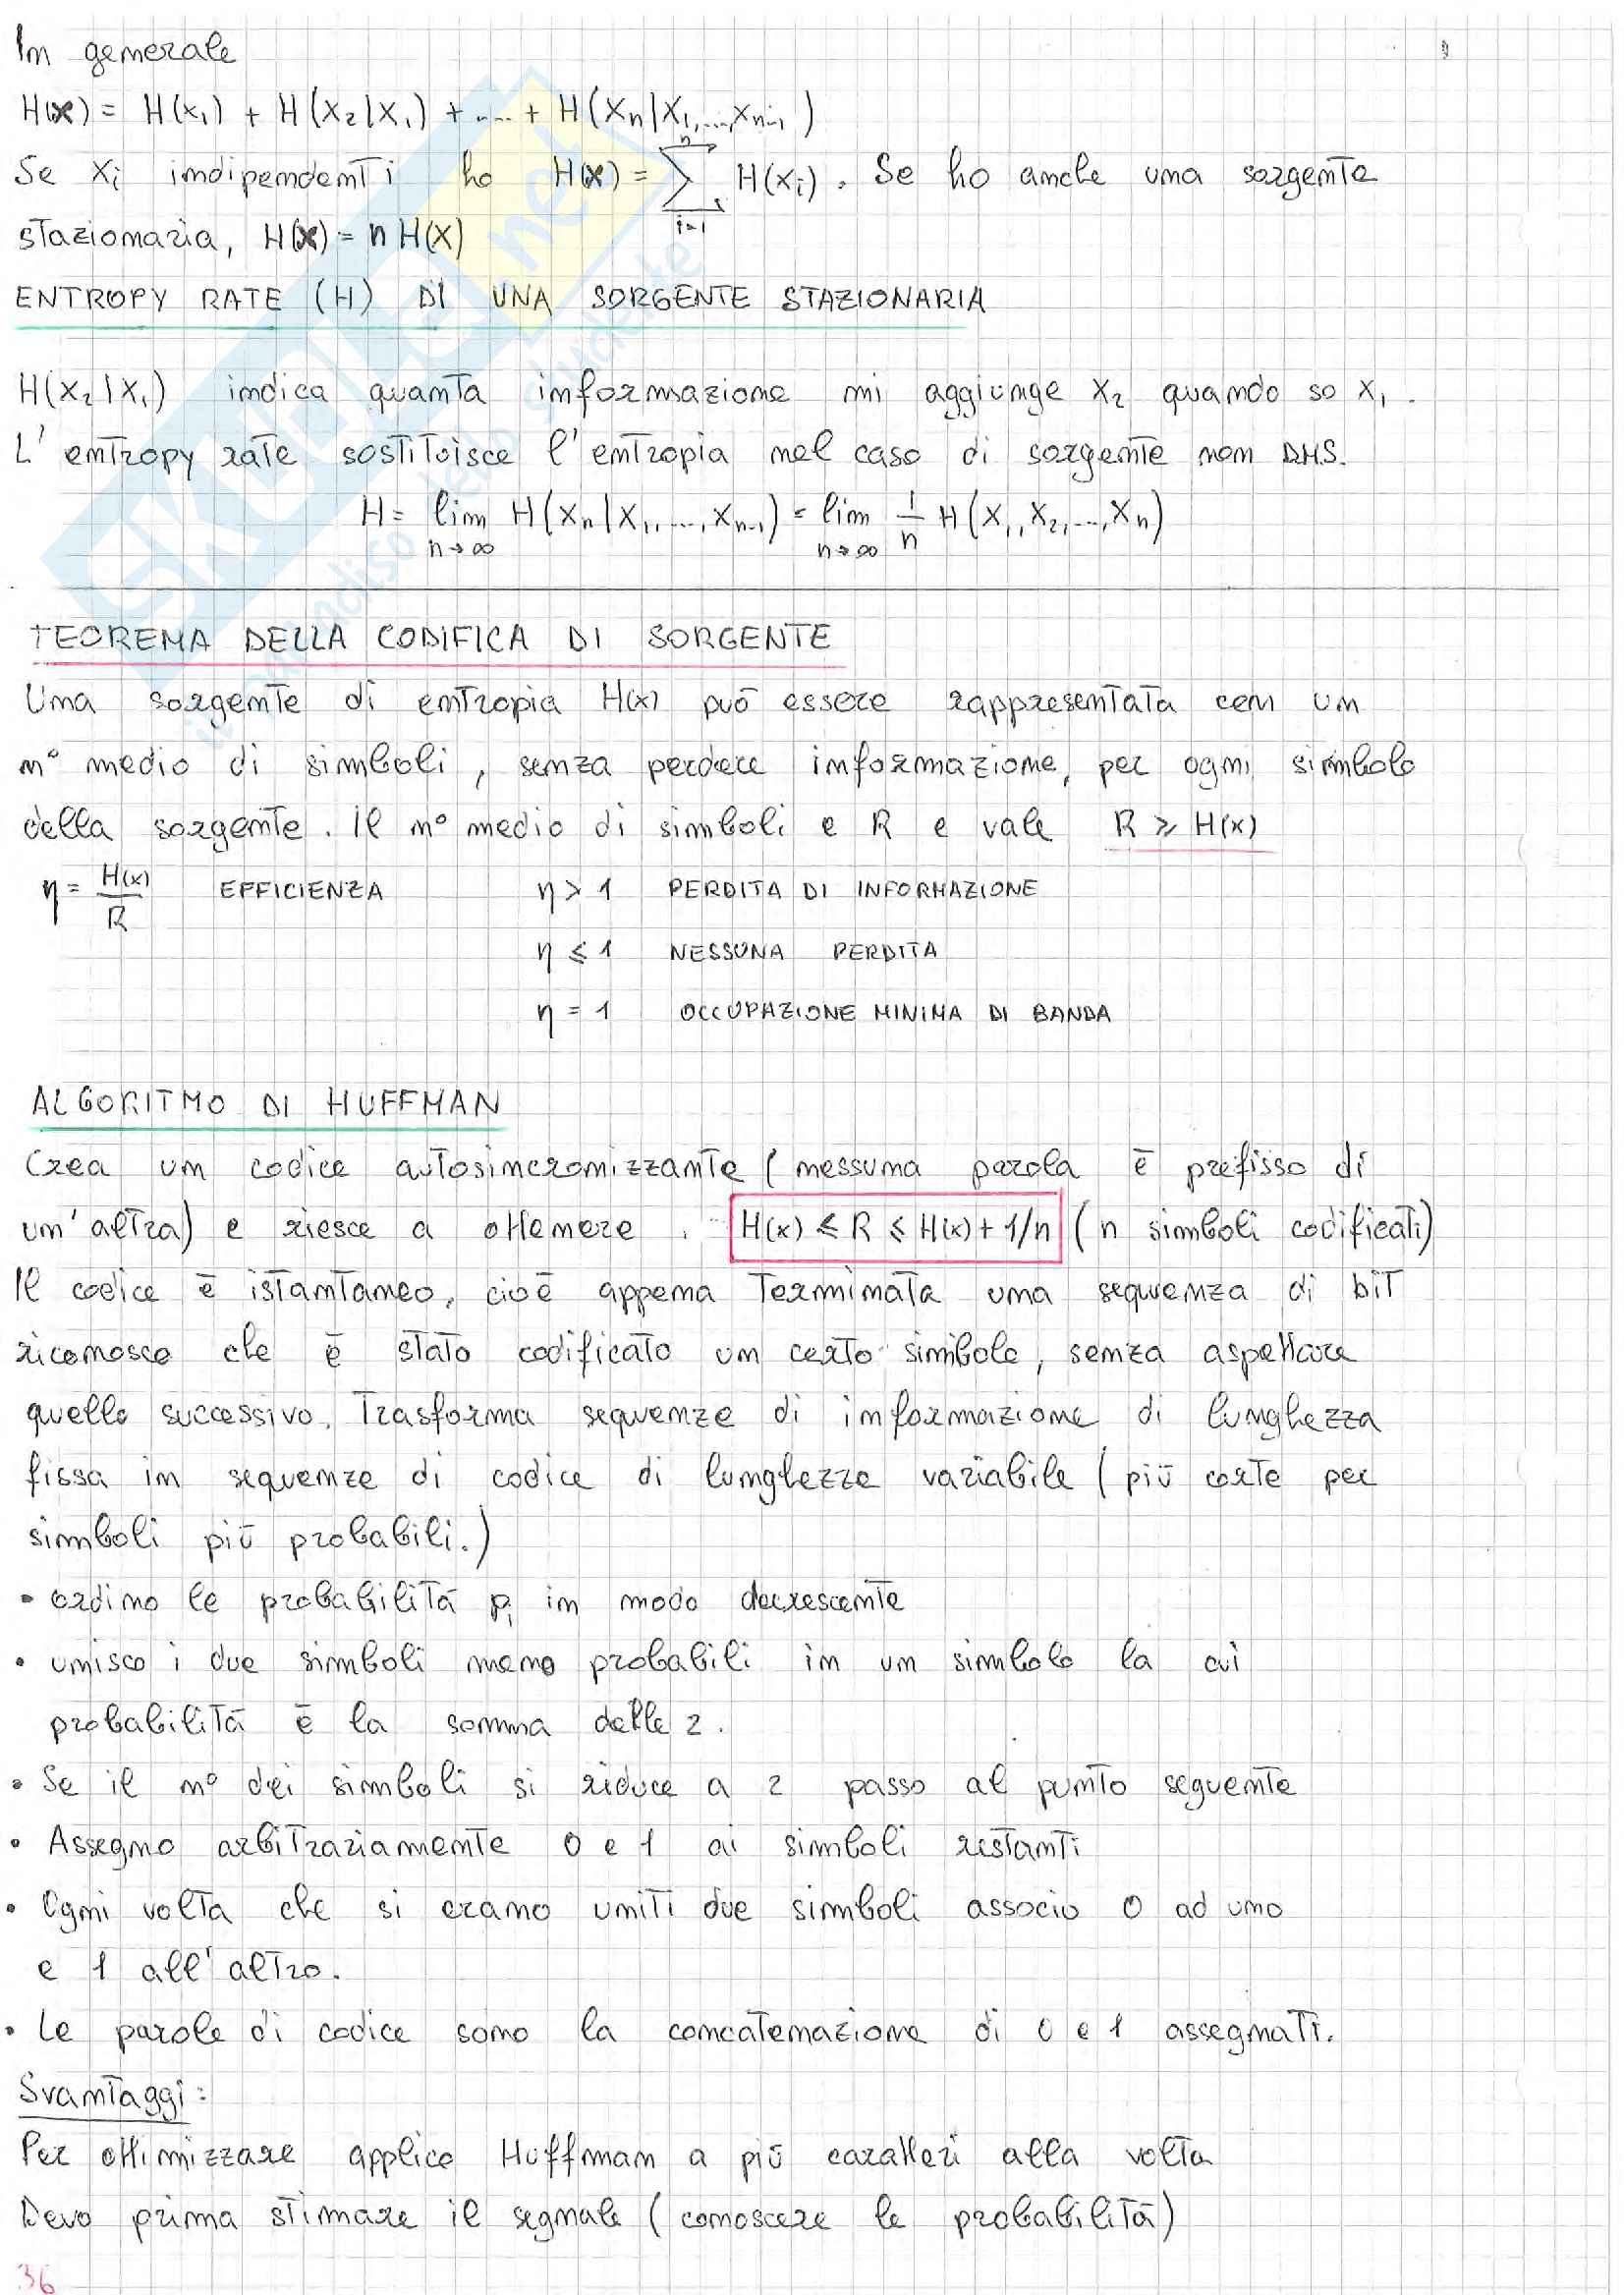 In generale
H(x) = H(x₁) + H(x₂|x₁) + .... + H(xₙ|x₁,...,xₙ₋₁)
Se xᵢ indipendenti ho H(x) = Σᵢ₌₁ⁿ H(xᵢ). Se ho anche una sorgente
stazionaria, H(x) = n H(x)
ENTROPY RATE (H) DI UNA SORGENTE STAZIONARIA
H(x₂|x₁) indica quanta informazione mi aggiunge x₂ quando so x₁.
L'entropy rate sostituisce l'entropia nel caso di sorgente non DMS.
H = lim n→∞ H(xₙ|x₁,...,xₙ₋₁) = lim n→∞ 1/n H(x₁,x₂,...,xₙ)
TEOREMA DELLA CODIFICA DI SORGENTE
Una sorgente di entropia H(x) può essere rappresentata con un
n° medio di simboli, senza perdere informazione, per ogni simbolo
della sorgente. Il n° medio di simboli e R e vale R ⩾ H(x)
η = H(x)/R EFFICIENZA η > 1 PERDITA DI INFORMAZIONE
η ⩽ 1 NESSUNA PERDITA
η = 1 OCCUPAZIONE MINIMA DI BANDA
ALGORITMO DI HUFFMAN
Crea un codice autosincronizzante (nessuna parola è prefisso di
un'altra) e riesce a ottenere. H(x) ⩽ R ⩽ H(x) + 1/n (n simboli codificati)
Il codice è istantaneo, cioè appena terminata una sequenza di bit
riconosco che è stato codificato un certo simbolo, senza aspettare
quello successivo. Trasforma sequenze di informazione di lunghezza
fissa in sequenze di codice di lunghezze variabile (più corte per
simboli più probabili.)
• ordino le probabilità pᵢ in modo decrescente
• unisco i due simboli meno probabili in un simbolo la cui
probabilità è la somma delle 2.
• Se il n° dei simboli si riduce a 2 passo al punto seguente
• Assegno arbitrariamente 0 e 1 ai simboli restanti
• Ogni volta che si erano uniti due simboli associo 0 ad uno
e 1 all'altro.
• Le parole di codice sono la concatenazione di 0 e 1 assegnati.
Svantaggi:
Per ottimizzare applico Huffman a più caratteri alla volta
Devo prima stimare il segnale (conoscere le probabilità)
36